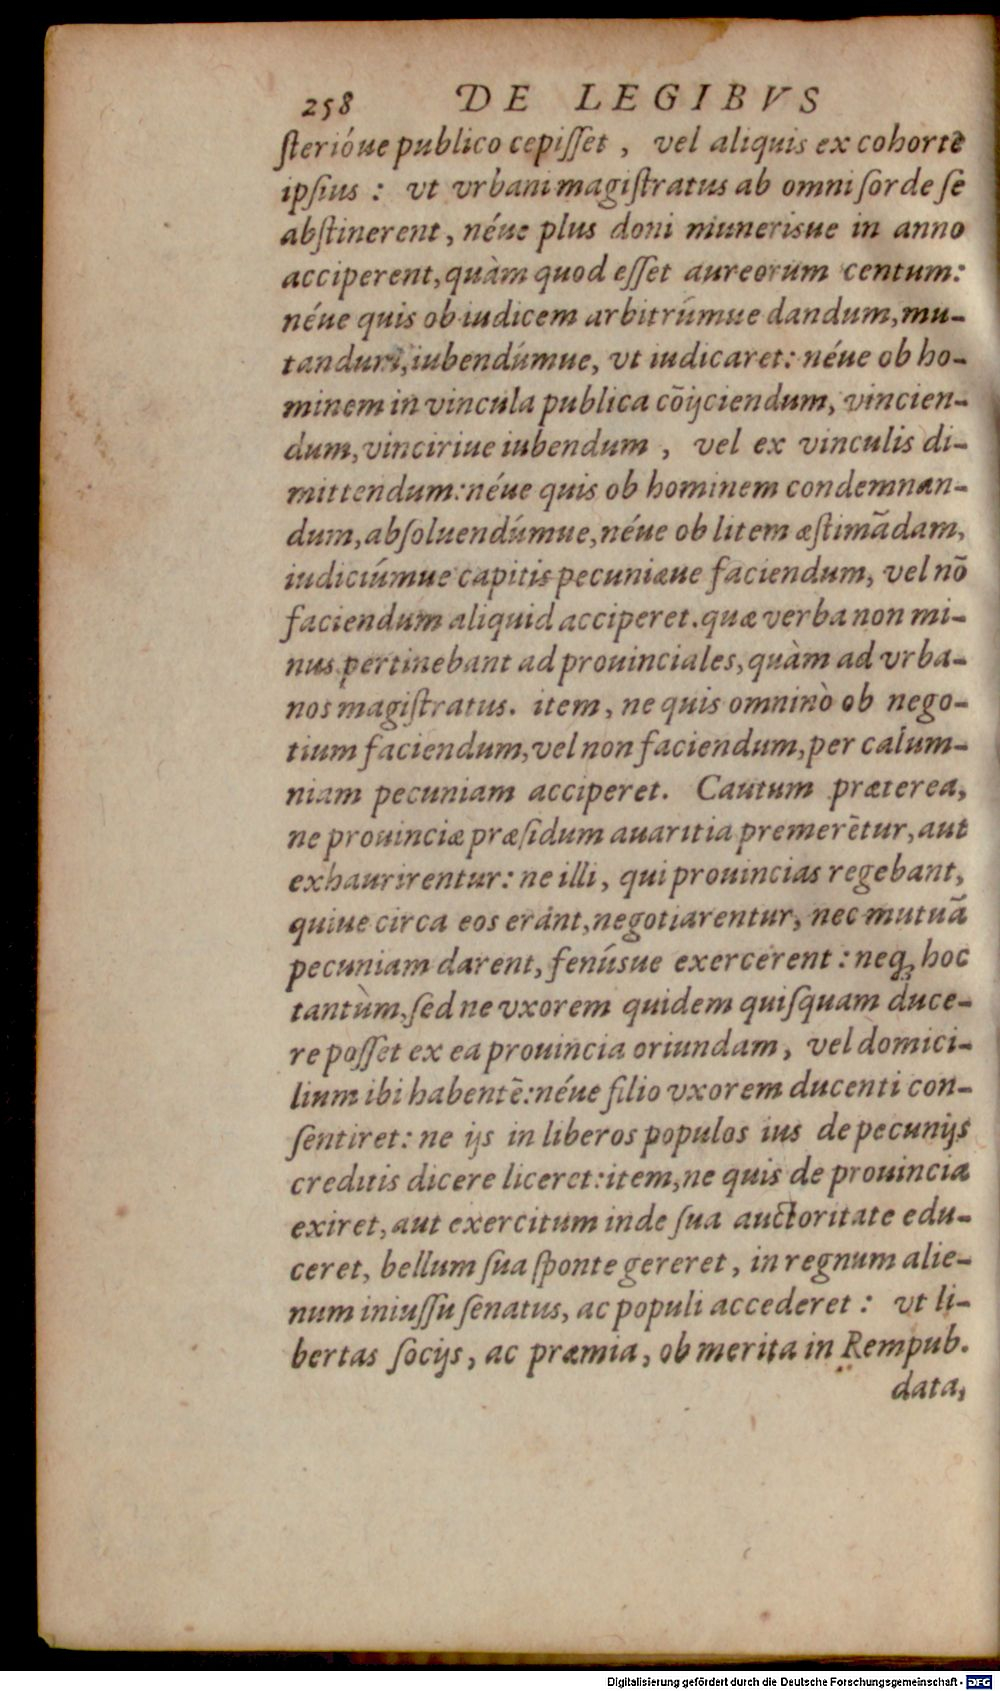 258 DE LEGIBVS
ſterióue publico cepiſſet, vel aliquis ex cohorte
ipſius: vt vrbani magiſtratus ab omni ſorde ſe
abſtinerent, néue plus doni munerisue in anno
acciperent, quàm quod eſſet aureorum centum:
néue quis ob iudicem arbitrúmue dandum, mu-
tandum, iubendúmue, vt iudicaret: néue ob ho-
minem in vincula publica cōijciendum, vincien-
dum, vinciriue iubendum, vel ex vinculis di-
mittendum: néue quis ob hominem condemnan-
dum, abſoluendúmue, néue ob litem æſtimādam,
iudiciúmue capitis pecuniæue faciendum, vel nō
faciendum aliquid acciperet. quæ verba non mi-
nus pertinebant ad prouinciales, quàm ad vrba-
nos magiſtratus. item, ne quis omninò ob nego-
tium faciendum, vel non faciendum, per calum-
niam pecuniam acciperet. Cautum præterea,
ne prouinciæ præſidum auaritia premerētur, aut
exhaurirentur: ne illi, qui prouincias regebant,
quiue circa eos erant, negotiarentur, nec mutuā
pecuniam darent, fenúsue exercerent: neq; hoc
tantùm, ſed ne vxorem quidem quiſquam duce-
re poſſet ex ea prouincia oriundam, vel domici-
lium ibi habentē: néue filio vxorem ducenti con-
ſentiret: ne ijs in liberos populos ius de pecunijs
creditis dicere liceret: item, ne quis de prouincia
exiret, aut exercitum inde ſua auctoritate edu-
ceret, bellum ſua ſponte gereret, in regnum alie-
num iniuſſu ſenatus, ac populi accederet: vt li-
bertas ſocijs, ac præmia, ob merita in Rempub.
data,
Digitalisierung gefördert durch die Deutsche Forschungsgemeinschaft - DFG